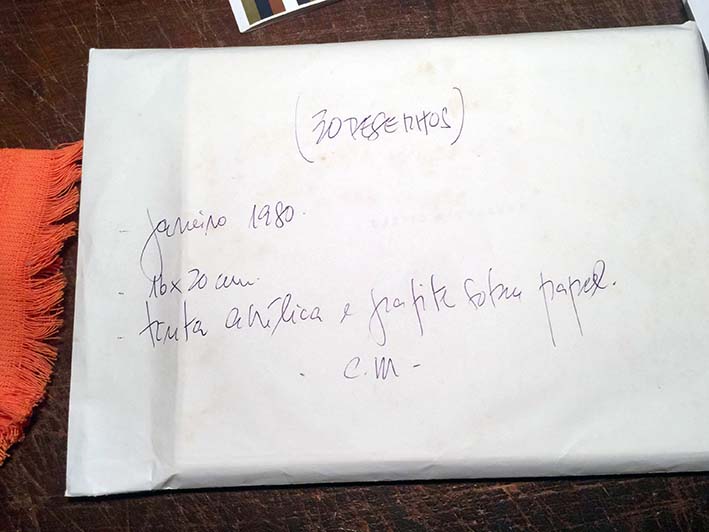 (30 DESENHOS)
- janeiro 1980.
- 16x20 cm.
- tinta acrílica e grafite sobre papel.
- C.M -